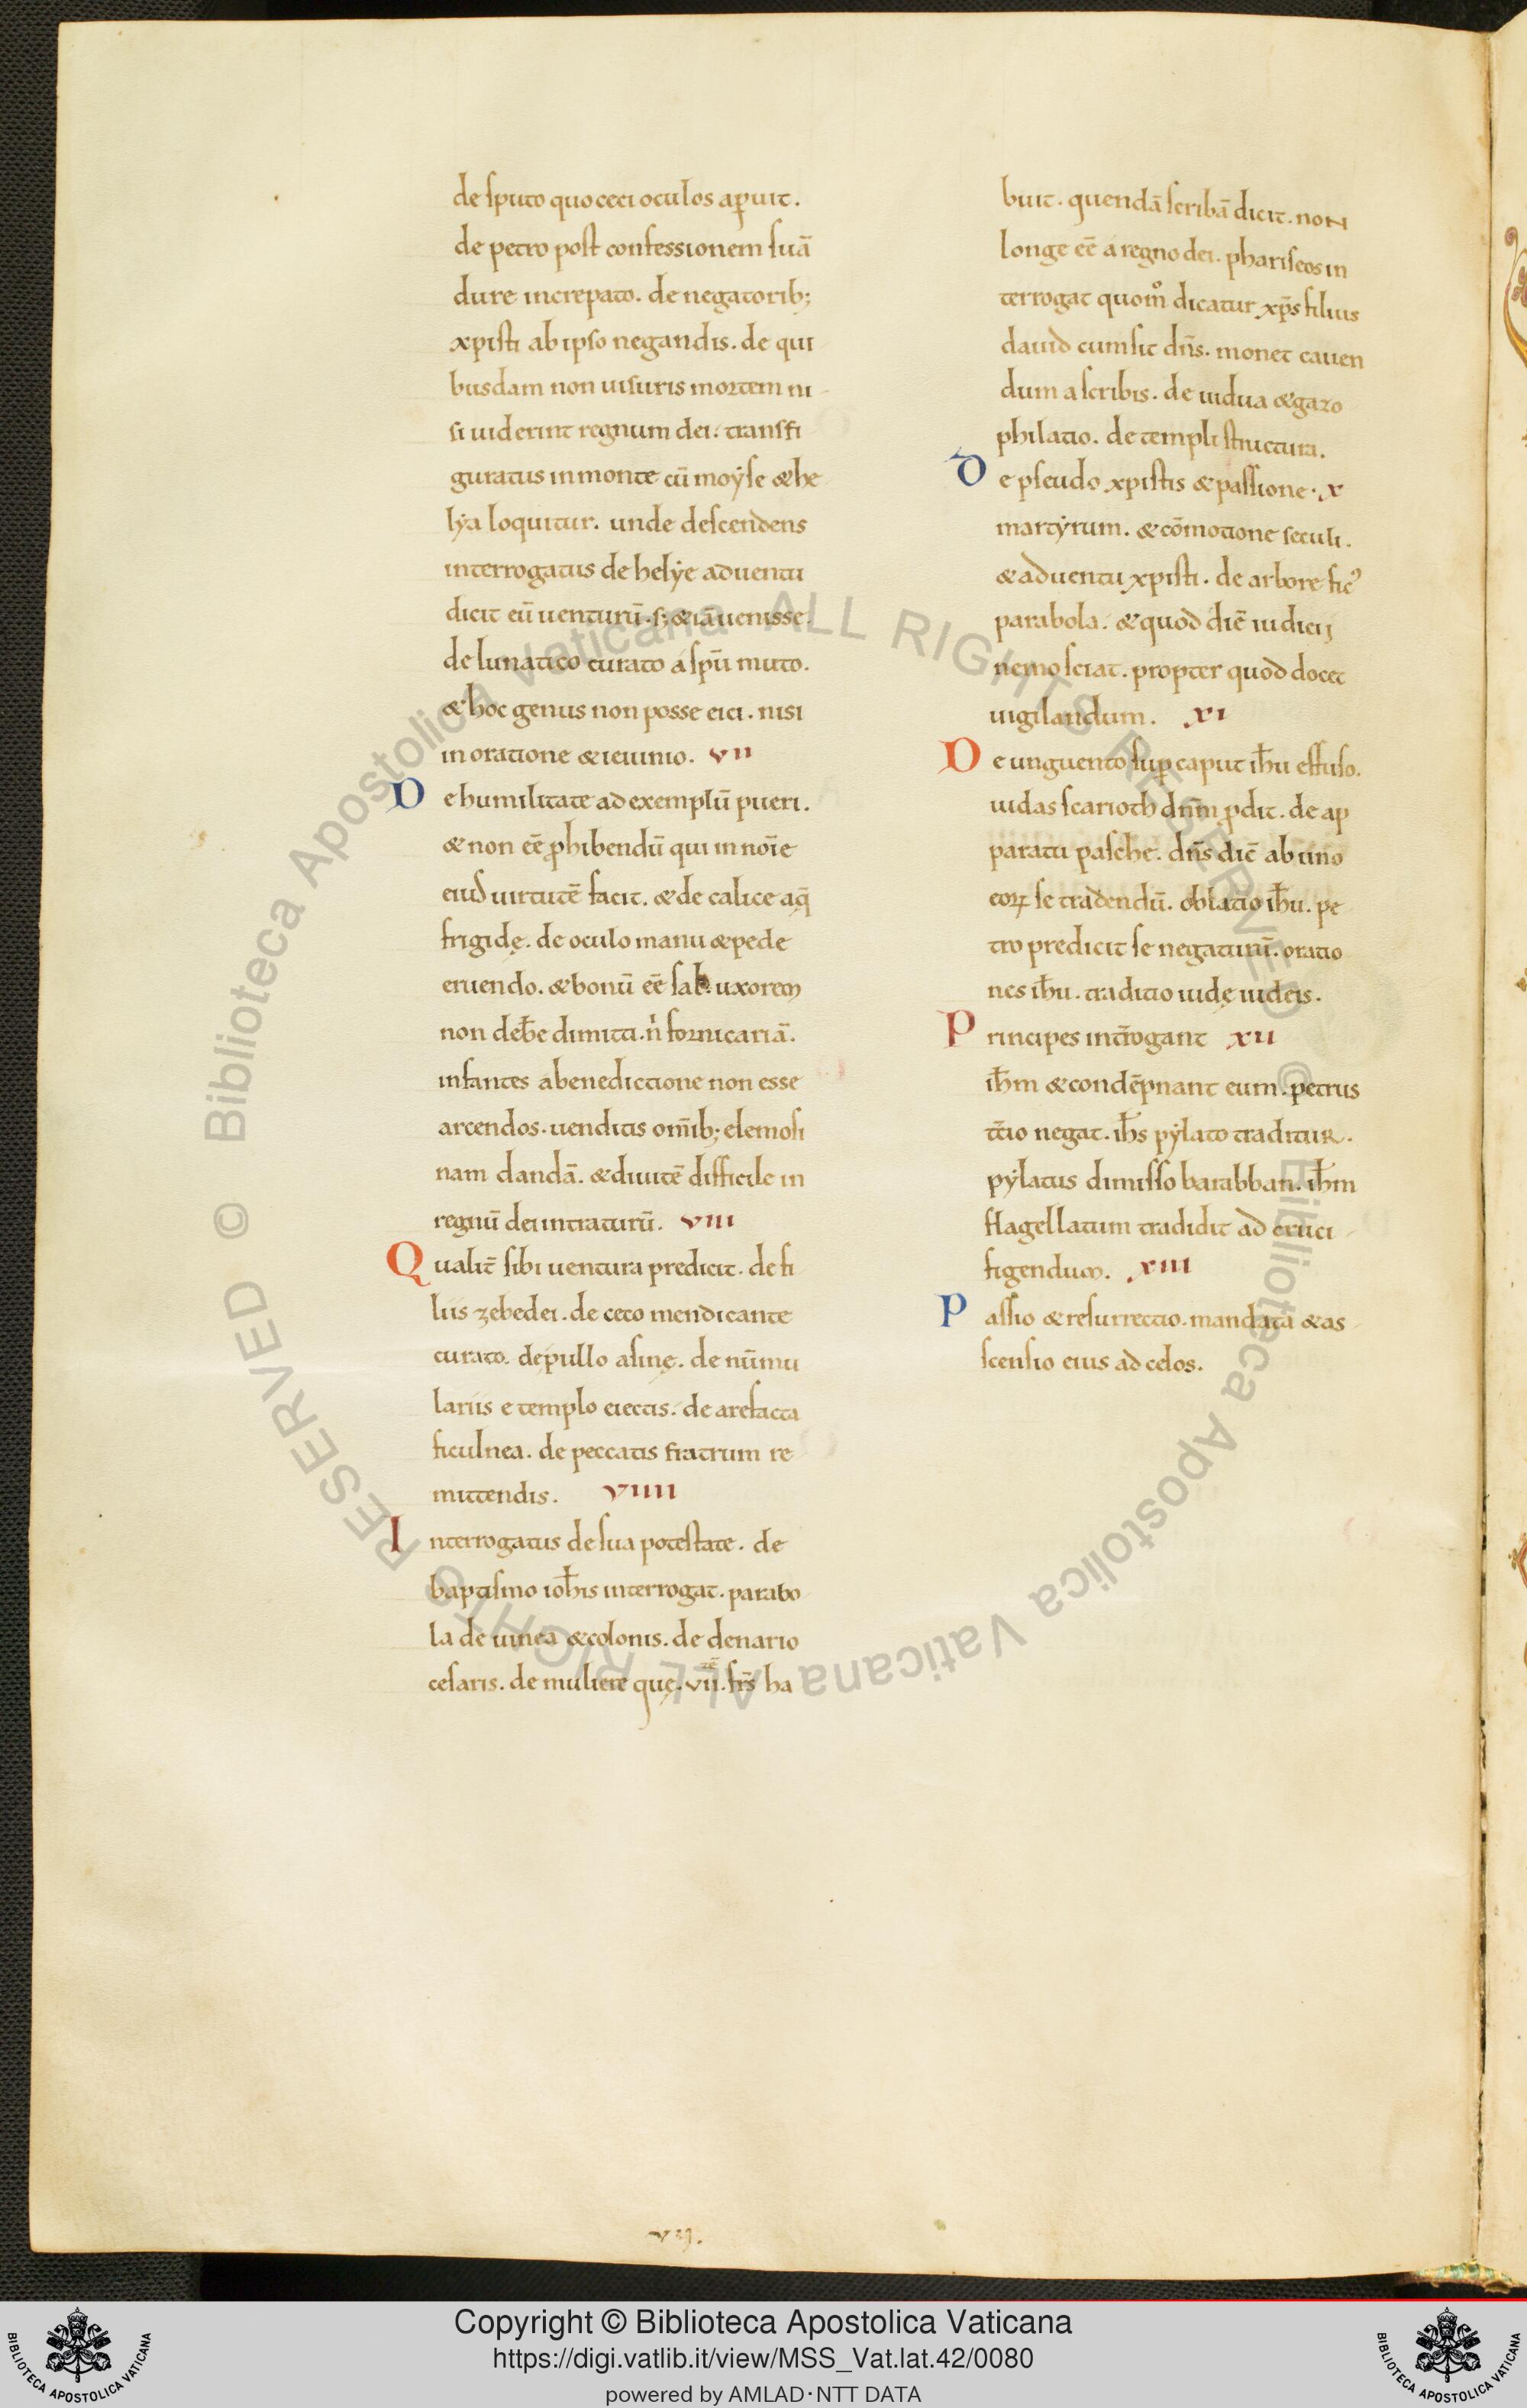 de sputo quo ceci oculos aꝑuit.
de petro post confessionem suā
dure increpato. de negatorib;
xpisti ab ipso negandis. de qui
busdam non uisuris mortem ni
si uiderint regnum dei. transfi
guratus in monte cū moẏse & he
lẏa loquitur. unde descendens
interrogatus de helẏe aduentu
dicit eū uenturū. s; & iā uenisse.
de lunatico curato a spū muto.
& hoc genus non posse eici. nisi
in oratione & ieiunio. VII
De humilitate ad exemplū pueri.
& non eē ꝓhibendū qui in noīe
eius uirtutē facit. & de calice aq̄
frigidę. de oculo manu & pede
eruendo. & bonū eē sal. uxorem
non debe̅ dimitti. n̄ fornicariā.
infantes a benedictione non esse
arcendos. uenditis om̄ib; elemosi
nam dandā. & diuitē difficile in
regnū dei intraturū. VIII
Qualit̄ sibi uentura predicit. de fi
liis zebedei. de ceco mendicante
curato. de pullo asinę. de nūmu
lariis e templo eiectis. de arefacta
ficulnea. de peccatis fratrum re
mittendis. VIIII
Interrogatus de sua potestate. de
baptismo ioh̄is interrogat. parabo
la de uinea & colonis. de denario
cesaris. de muliere quę. VII. fr̄s ha
buit. quendā scribā dicit. non
longe eē a regno dei. phariseos in
terrogat quom̊ dicatur xp̄s filius
dauid cum sit dn̄s. monet cauen
dum a scribis. de uidua & gazo
philatio. de templi structura.
De pseudo xpistis & passione. X
martẏrum. & cōmotione seculi.
& aduentu xpisti. de arbore fic᾽
parabola. & quod diē iudicij
nemo sciat. propter quod docet
uigilandum. XI
De unguento suꝑ caput ih̄u effuso.
iudas scarioth dn̄m ꝓdit. de ap
paratu pasche. dn̄s dic̄ ab uno
eoꝝ se tradendū. oblatio ih̄u. pe
tro predicit se negaturū. oratio
nes ih̄u. traditio iudę iudeis.
Principes int̄rogant XII
ih̄m & condēpnant eum. petrus
t̄cio negat. ih̄s pẏlato traditur.
pẏlatus dimisso barabban. ih̄m
flagellatum tradidit ad cruci
figendum. XIII
Passio & resurrectio. mandata & as
scensio eius ad celos.
VIJ.
© Biblioteca Apostolica Vaticana ALL RIGHTS RESERVED © Biblioteca Apostolica Vaticana ALL RIGHTS RESERVED
BIBLIOTECA APOSTOLICA VATICANA
Copyright © Biblioteca Apostolica Vaticana
https://digi.vatlib.it/view/MSS_Vat.lat.42/0080
powered by AMLAD·NTT DATA
BIBLIOTECA APOSTOLICA VATICANA